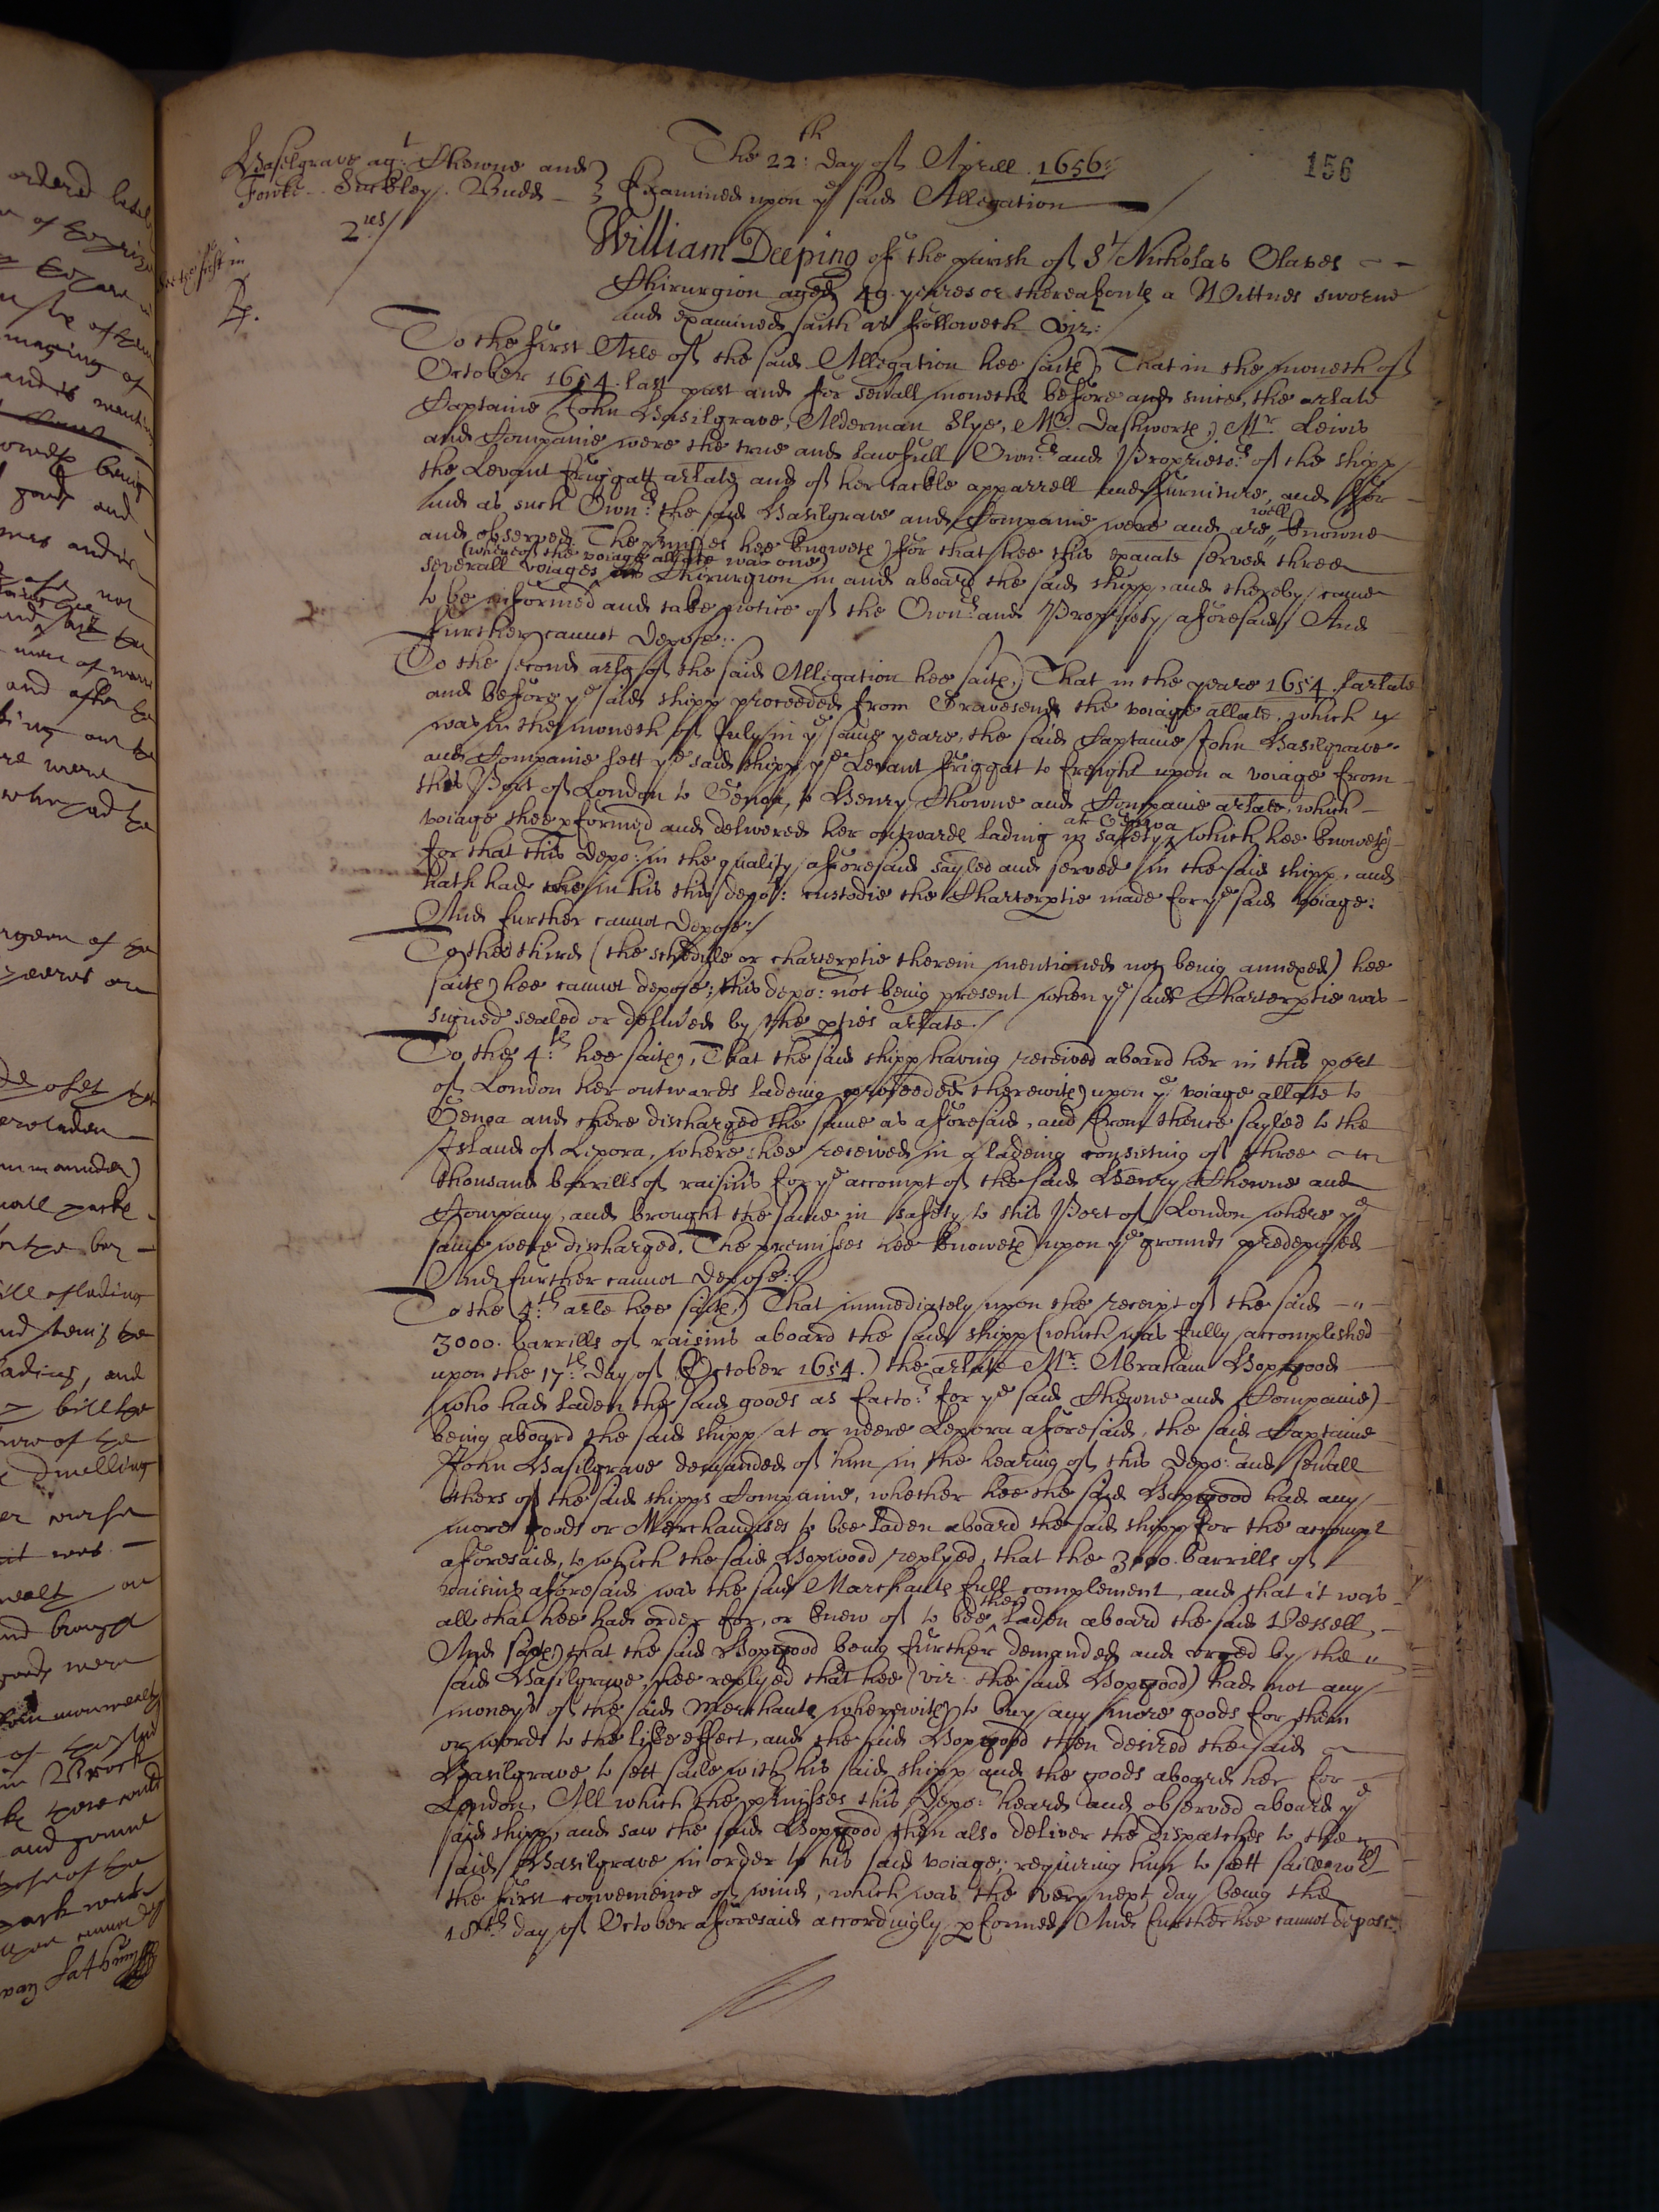 156
The 22:th day of Aprill 1656:
Basilgrave agt. Chowne and
Fowke. Suckley. Budd
Examined upon ye said Allegation
2us/
William Deeping of the parish of St Nicholas Olaves
Chirurgion aged 49. yeares or thereabouts a Wittnes sworne
and examined saith as followeth viz:
To the first Arle of the said Allegation hee saith, That in the moneth of
October 1654. last past and for sevrall moneths before and since, the arlate
Captaine John Basilgrave, Alderman Slye, Mr. Dashworth, Mr. Lewis
and Companie were the true and lawfull Ownrs and Proprietrs of the shipp
the Levant friggatt arlate and of her tackle apparrell and furniture, and for
and as such Ownrs the said Basilgrave and Companie were and are well knowne
and observed. The prmisses hee knoweth for that hee this exaiate served three
severall voiages (whereof the voiage allate was one) Chirurgion in and aboard the said shipp, and thereby came
to be informed and take notice of the Ownrs and Propriety aforesaid, And
further cannot depose:.
To the second arle of the said Allegation hee saith, That in the yeare 1654. arlate
and before ye said shipp proceeded from Gravesend the voiage allate, which
was in the moneth of July in ye same yeare, the said Captaine John Basilgrave
and Companie lett ye said shipp ye Levant friggat to freight upon a voiage from
this Port of London to Genoa, to Henry Chowne and Companie arlate, which
voiage shee pformed and delivered her outwards lading in safety at Genoa, which hee knoweth
for that this depot in the quality aforesaid sayled and served in the said shipp, and
hath had in his this depots: custodie the Charterptie made for ye said voiage:
And further cannot depose:/
To the third (the schedule or charterptie therein mentioned not being annexed) hee
saith hee cannot depose; this depo: not being present when ye said Charterptie was
signed sealed or delivred by the pties arlate./
To the 4:th hee saith, That the said shipp having received aboard her in this port
of London her outwards ladeing proceeded therewith upon ye voiage allate to
Genoa and there discharged the same as aforesaid, and from thence sayled to the
Island of Lipora, where shee received in a ladeing consisting of three
thousand barrills of raisins for ye accompt of the said Henry Chowne and
Company, and brought the same in safety to this Port of London where ye
same were discharged. The premisses hee knoweth upon ye grounds predeposed
And further cannot depose:/
To the 4:th arle hee saith, That immediately upon the receipt of the said
3000. barrills of raisins aboard the said shipp (which was fully accomplished
upon the 17:th day of October 1654.) the arlate Mr. Abraham Hopwood
(who had laden the said goods as factor for ye said Chowne and Companie)
being aboard the said shipp at or neere Lepora aforesaid, the said Captaine
John Basilgrave demanded of him in the hearing of this depot and sevrall
others of the said shipps Companie, whether hee the said Hopwood had any
more goods or Merchandises to bee laden aboard the said shipp for the accompt
aforesaid, to which the said Hopwood replyed, that the 3000. barrills of
raisins aforesaid was the said Marchants full complement, and that it was
all that hee had order for, or knew of to bee then laden aboard the said Vessell,
And saith that the said Hopwood being further demanded and urged by the
said Basilgrave, hee replyed that hee (viz. the said Hopwood) had not any
moneys of the said Merchants wherewith to buy any more goods for them
or words to the like effect, and the said Hopwood then desired the said
Basilgrave to sett saile with his said shipp and the goods aboard her for
London, All which the prmisses this depo: heard and observed aboard ye
said shipp, and saw the said Hopwood then also deliver the dispatches to the
said Basilgrave in order to his said voiage; requiring him to sett saile wth
the first convenience of wind, which was the very next day being the
18th day of October aforesaid accordingly pformed, And further hee cannot depose.